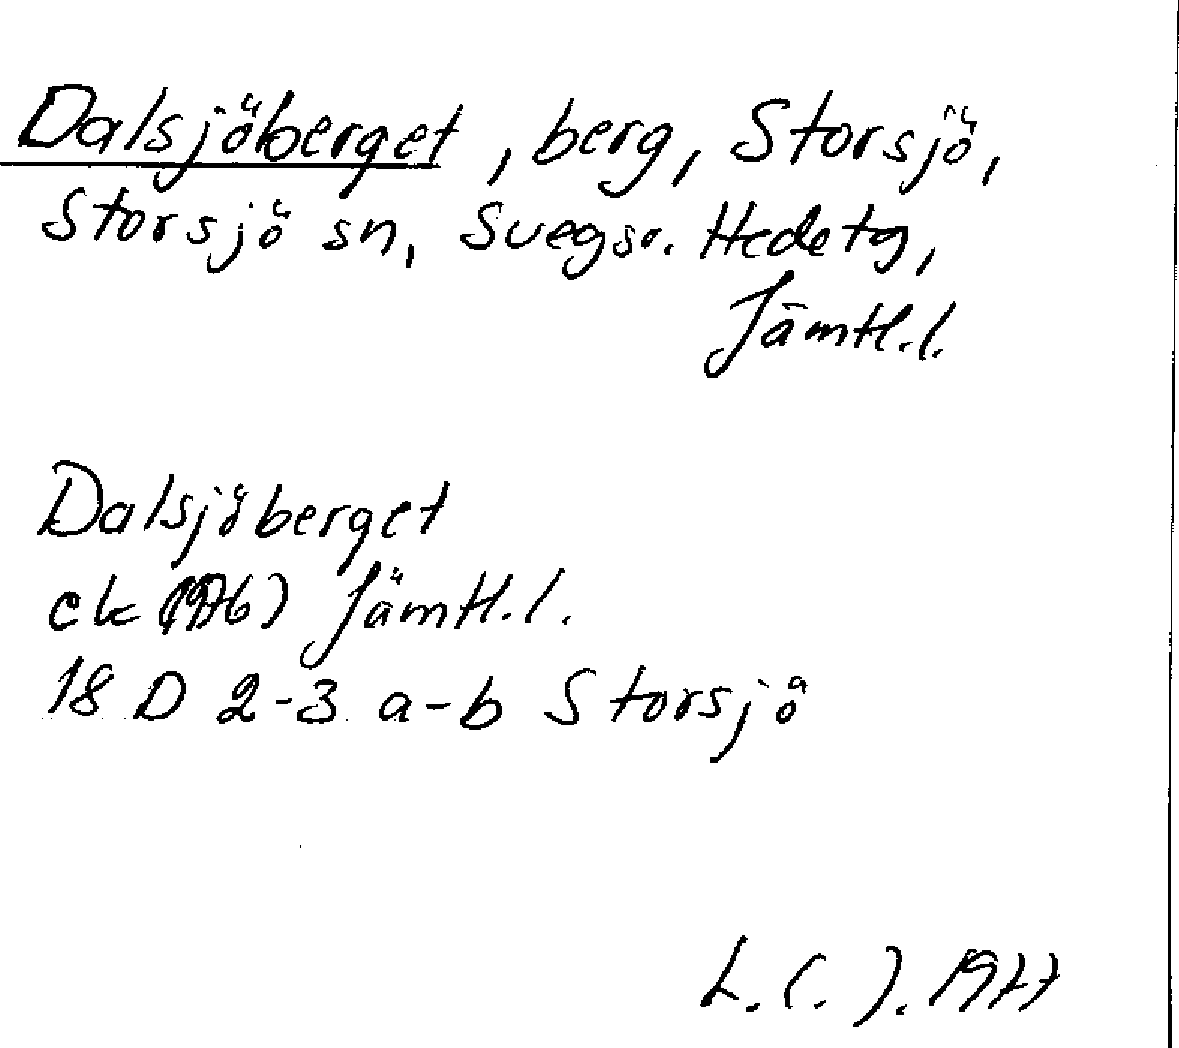 Dalsjöberget, berg, Storsjö,
Storsjö sn, Svegso. Hede tg,
Jämtl.l.
Dalsjöberget
ek (1976) Jämtl.l.
18 D 2-3 a-b Storsjö
1977